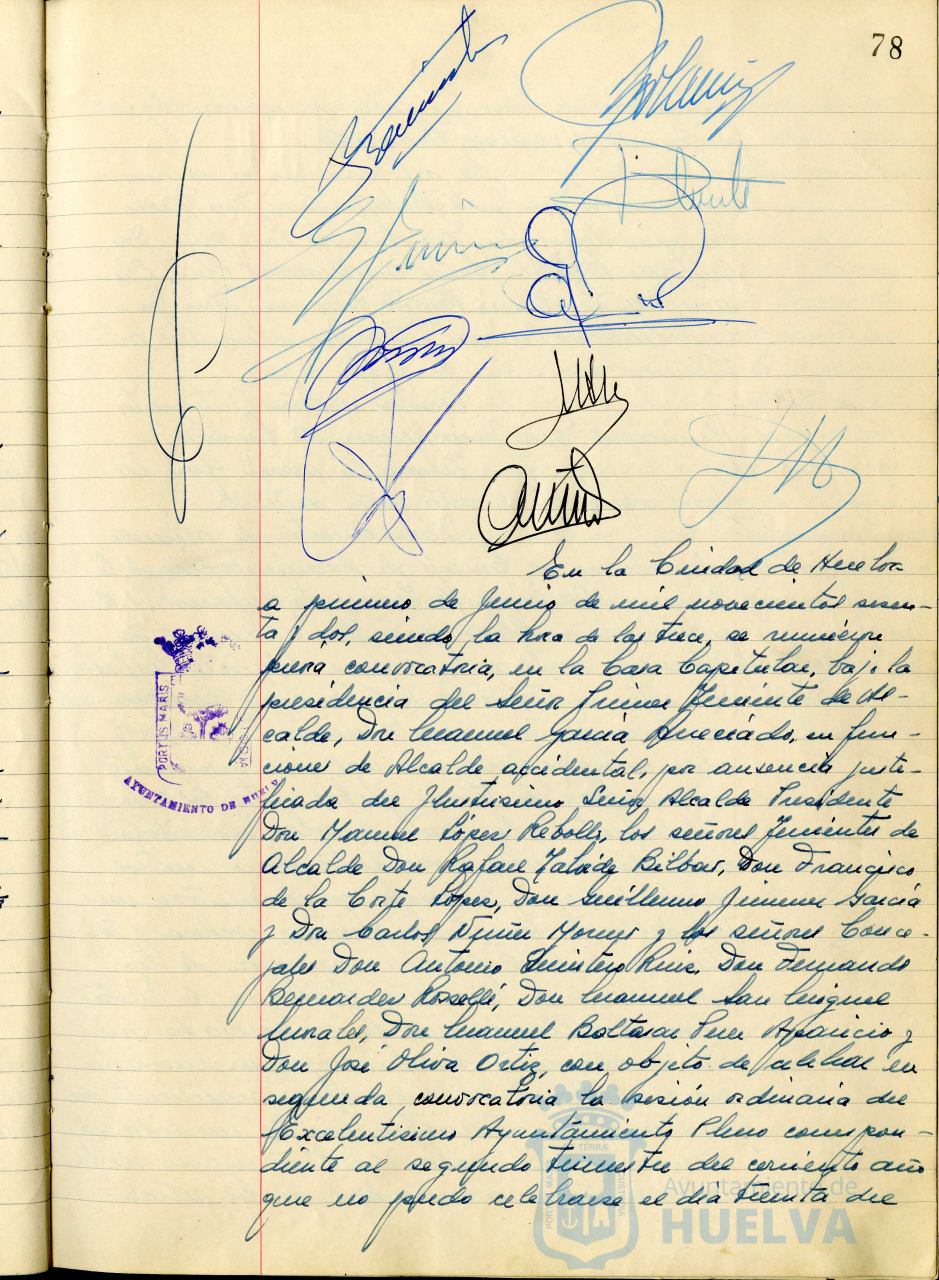 78
En la Ciudad de Huelva
a primero de Junio de mil novecientos sesen-
ta y dos, siendo la hora de las trece, se reunieron
previa convocatoria, en la Casa Capitular, bajo la
presidencia del Señor Primer Teniente de Al-
calde, Don Manuel García, en fun-
ciones de Alcalde accidental, por ausencia justi-
ficada del Ilustrisimo Señor Alcalde Presidente
Don Manuel López Rebollo, los señores Tenientes de
Alcalde Don Rafael Bilbao, Don Francisco
de la Corte López, Don Guillermo Jimenez García
y Don Carlos y los señores Conce-
jales Don Antonio Ruiz, Don Fernando
Bernardez Rosselló, Don Manuel San Miguel
Morales, Don Manuel Baltasar Pérez Aparicio y
Don José Oliva Ortiz, con objeto de celebrar en
segunda convocatoria la sesión ordinaria del
Excelentisimo Ayuntamiento Pleno correspon-
diente al segundo trimestre del corriente año
que no pudo celebrarse el día treinta del
PORTUS MARIS
AYUNTAMIENTO DE HUELVA
Ayuntamiento de
HUELVA